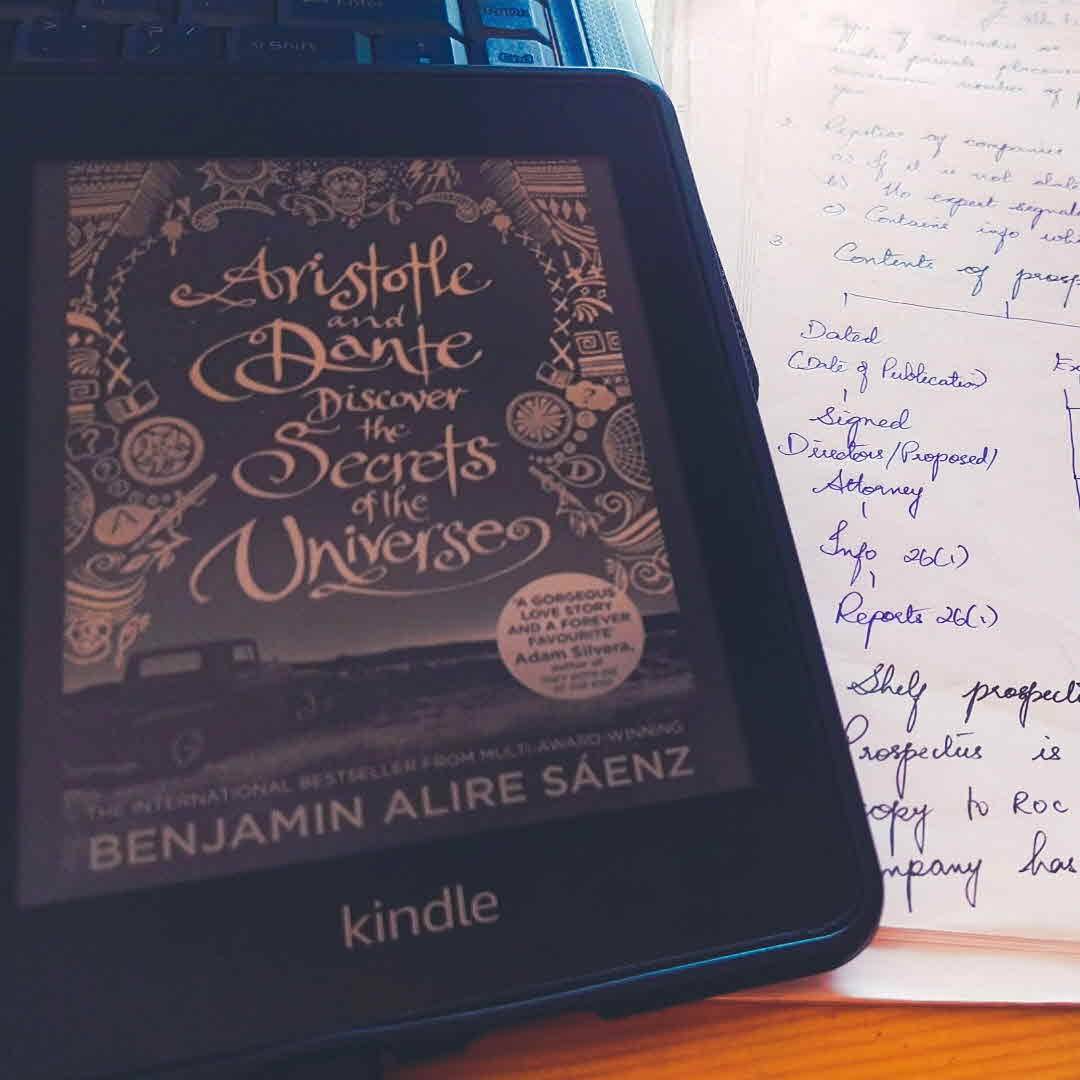 Shift
Aristotle
and
Dante
Discover
the
Secrets
of the
Universe
'A GORGEOUS
LOVE STORY
AND A FOREVER
FAVOURITE'
Adam Silvera,
author of
THEY BOTH DIE
AT THE END
THE INTERNATIONAL BESTSELLER FROM MULTI-AWARD-WINNING
BENJAMIN ALIRE SÁENZ
kindle
Type of securities
under private placement
number of
2. Registrar of companies
a) If it is not dated
b) No expert
c) Contains info
3. Contents of
Dated
(Date of Publication)
Signed
Directors/Proposed/
Attorney
Info 26(1)
Reports 26(1)
Shelf
Prospectus is
copy to ROC
has